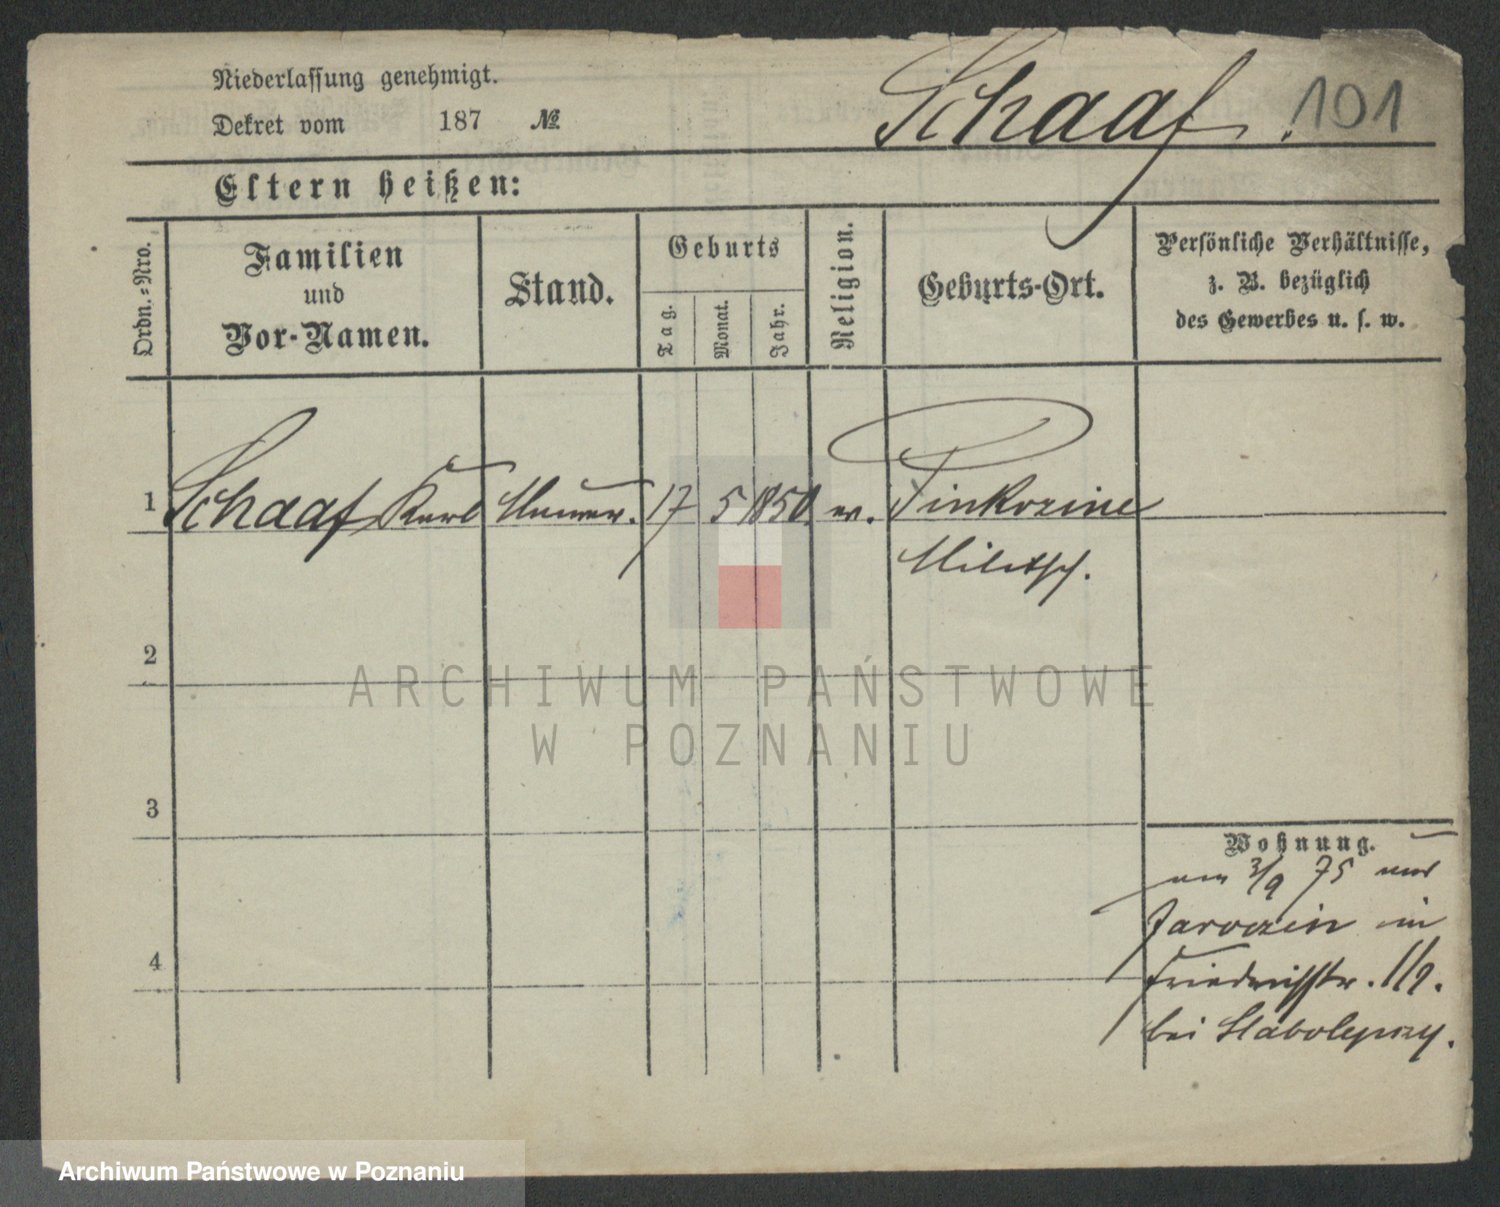 Niederlassung genehmigt.
Dekret vom 187 №
Schaaf. 101
Eltern heißen:
Ordn.-Nro.
Familien
und
Vor-Namen.
Stand.
Geburts
Tag.
Monat.
Jahr.
Religion.
Geburts-Ort.
Persönliche Verhältnisse,
z. B. bezüglich
des Gewerbes u. s. w.
1 Schaaf Karl 17 5 1850 ev. Pinkozine
Militsch.
2
3
4
ARCHIWUM PAŃSTWOWE
W POZNANIU
Wohnung.
am 3/9 75 aus
Jaroczin in
Friedrichstr.
bei
Archiwum Państwowe w Poznaniu